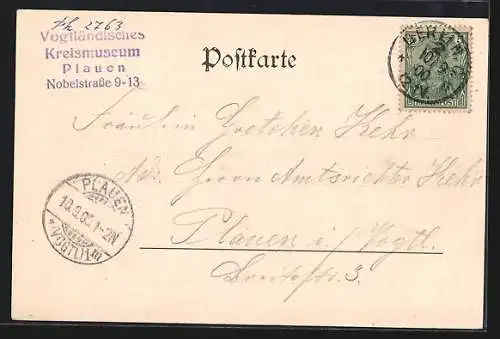 Ph 2763
Vogtländisches
Kreismuseum
Plauen
Nobelstraße 9-13
Postkarte
BERLIN C
10 9
00
Fräulein Gretchen Kehr
Adr. Herrn Amtsrichter Kehr
Plauen i/ Vogtl.
3.
PLAUEN
10.9.00.1-2N
*(VOGTL.)